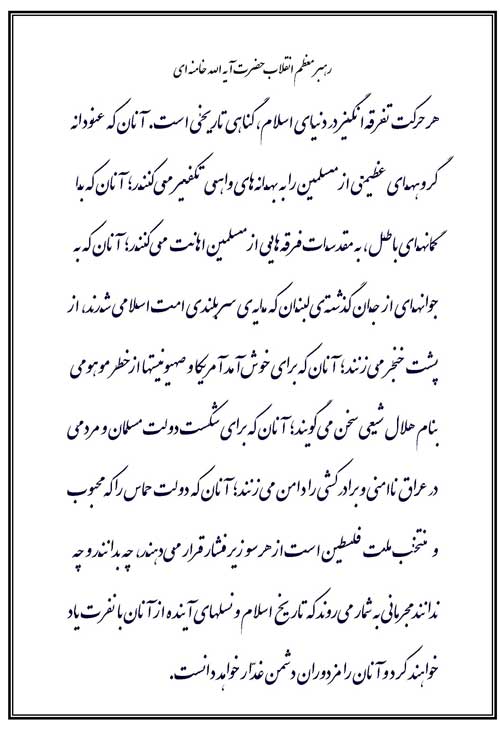 رهبر معظم انقلاب حضرت آیه الله خامنه ای
هر حرکت تفرقه انگیز در دنیای اسلام، گناهی تاریخی است. آنان که عنودانه
گروههای عظیمی از مسلمین را به بهانه های واهی تکفیر می کنند؛ آنان که با
گمانهای باطل، به مقدسات فرقه هایی از مسلمین اهانت می کنند؛ آنان که به
جوانهای از جان گذشته ی لبنان که مایه ی سربلندی امت اسلامی شدند، از
پشت خنجر می زنند؛ آنان که برای خوش آمد آمریکا و صهیونیستها از خطر موهومی
بنام هلال شیعی سخن می گویند؛ آنان که برای شکست دولت مسلمان و مردمی
در عراق ناامنی و برادرکشی را دامن می زنند؛ آنان که دولت حماس را که محبوب
و منتخب ملت فلسطین است از هر سو زیر فشار قرار می دهند، چه بدانند و چه
ندانند مجرمانی به شمار می روند که تاریخ اسلام و نسلهای آینده از آنان با نفرت یاد
خواهند کرد و آنان را مزدوران دشمن غدّار خواهد دانست.